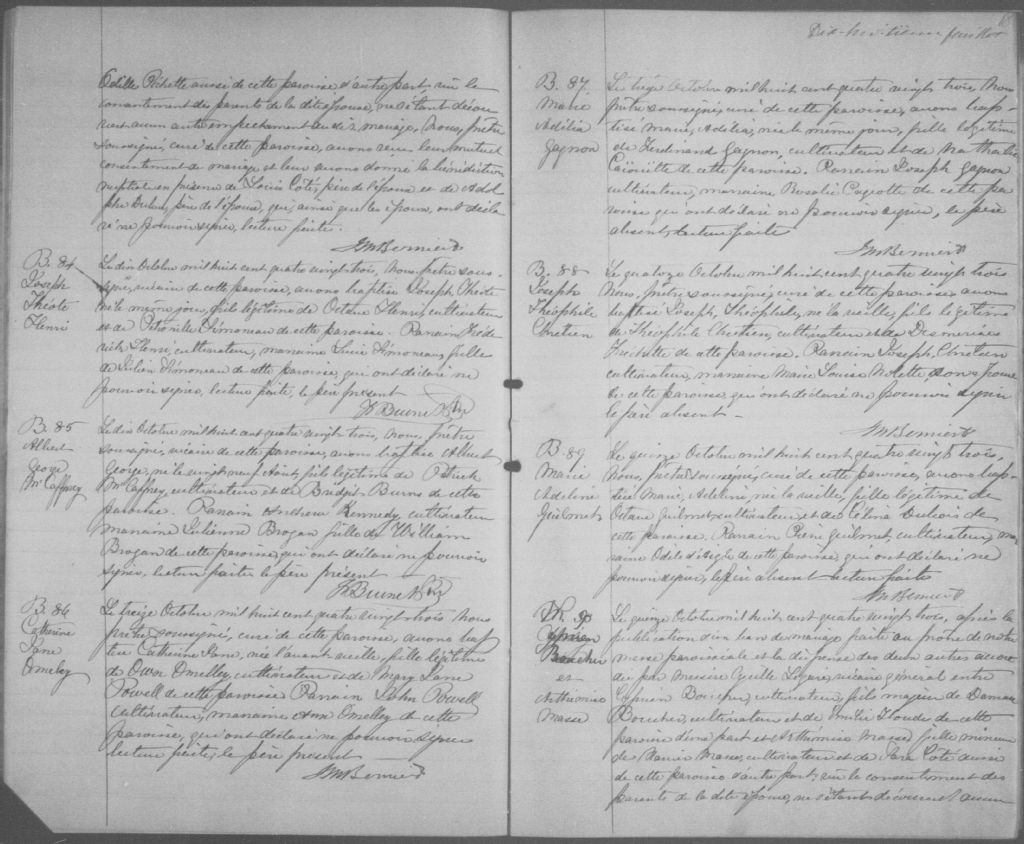 Odille Pichette aussi de cette paroisse d'autre part, vu le
consentement des parents de la dite épouse, ne s'étant décou
vert aucun autre empêchement au dit mariage, Nous, prêtre
soussigné, curé de cette paroisse, avons reçu leur mutuel
consentement de mariage et leur avons donné la bénédiction
nuptiale en présence de Louis Coté, père de l'époux et de Adol
phe père de l'épouse, qui, ainsi que les époux, ont décla
ré ne pouvoir signer, lecture faite.
JMBernier Ptr
B. 84
Joseph
Théode
Henri
Le dix Octobre mil huit cent quatre vingt trois, nous prêtre sous-
signé, vicaire de cette paroisse, avons baptisé Joseph Théode
né le même jour, fils légitime de Octave Henri, cultivateur
et de Pétronille Simoneau de cette paroisse. Parrain Fréde
rick Henri, cultivateur, marraine Lucie Simoneau, fille
de Julien Simoneau de cette paroisse, qui ont déclaré ne
pouvoir signer, lecture faite, le père présent
B. 85
Albert
George
McCaffrey
Le dix Octobre mil huit cent quatre vingt trois, nous, prêtre
soussigné, vicaire de cette paroisse, avons baptisé Albert
George, né le vingt neuf Août, fils légitime de Patrick
McCaffrey, cultivateur et de Bridget Burns de cette
paroisse. Parrain Andrew Kennedy, cultivateur
marraine Julienne Brogan fille de William
Brogan de cette paroisse, qui ont déclaré ne pouvoir
signer, lecture faite, le père présent
B. 86
Catherine
Jane
Omeley
Le treize Octobre mil huit cent quatre vingt trois, Nous
prêtre soussigné, curé de cette paroisse, avons bap
tisé Catherine Jane, née l'avant veille, fille légitime
de Owen Omelley, cultivateur et de Mary Jane
Powell de cette paroisse. Parrain John Powell
cultivateur, marraine Ann Omelley de cette
paroisse, qui ont déclaré ne pouvoir signer
lecture faite, le père présent
JMBernier Ptr
Dix-huitième feuillet
B. 87.
Marie
Adélia
Gagnon
Le treize Octobre mil huit cent quatre vingt trois, Nous
prêtre soussigné, curé de cette paroisse, avons bap
tisé Marie, Adélia, née le même jour, fille légitime
de Ferdinand Gagnon, cultivateur et de Nathalie
Caouette de cette paroisse. Parrain Joseph Gagnon
cultivateur, marraine Rosalie Cayotte de cette pa
roisse qui ont déclaré ne pouvoir signer, le père
absent, lecture faite
JMBernier Ptr
B. 88
Joseph
Théophile
Chrétien
Le quatorze Octobre mil huit cent quatre vingt trois
Nous, prêtre soussigné, curé de cette paroisse, avons
baptisé Joseph, Théophile, né la veille, fils légitime
de Théophile Chrétien, cultivateur et de Desmerises
Fréchette de cette paroisse. Parrain Joseph Chrétien
cultivateur, marraine Marie Louise Nolette son épouse
de cette paroisse, qui ont déclaré ne pouvoir signer
le père absent -
JMBernier Ptr
B. 89
Marie
Adeline
Guilmet
Le quinze Octobre mil huit cent quatre vingt trois,
Nous, prêtre soussigné, curé de cette paroisse, avons bap-
tisé Marie, Adeline, née la veille, fille légitime de
Octave Guilmet, cultivateur et de Célina Dubois de
cette paroisse. Parrain Pierre Guilmet, cultivateur, mar
raine Odile de cette paroisse, qui ont déclaré ne
pouvoir signer, le père absent lecture faite
JMBernier Ptr
M. 90
Cyprien
Boucher
et
Arthémise
Masse
Le quinze Octobre mil huit cent quatre vingt trois, après la
publication d'un ban de mariage faite au prône de notre
messe paroissiale et la dispense des deux autres accor
dée par Messire Cyrille Légaré, vicaire général entre
Cyprien Boucher, cultivateur, fils majeur de Damase
Boucher, cultivateur et de Emilie Houde de cette
paroisse d'une part et Arthémise Masse fille mineure
de Masse, cultivateur et de Sara Coté aussi
de cette paroisse d'autre part, vu le consentement des
parents de la dite épouse, ne s'étant découvert aucun